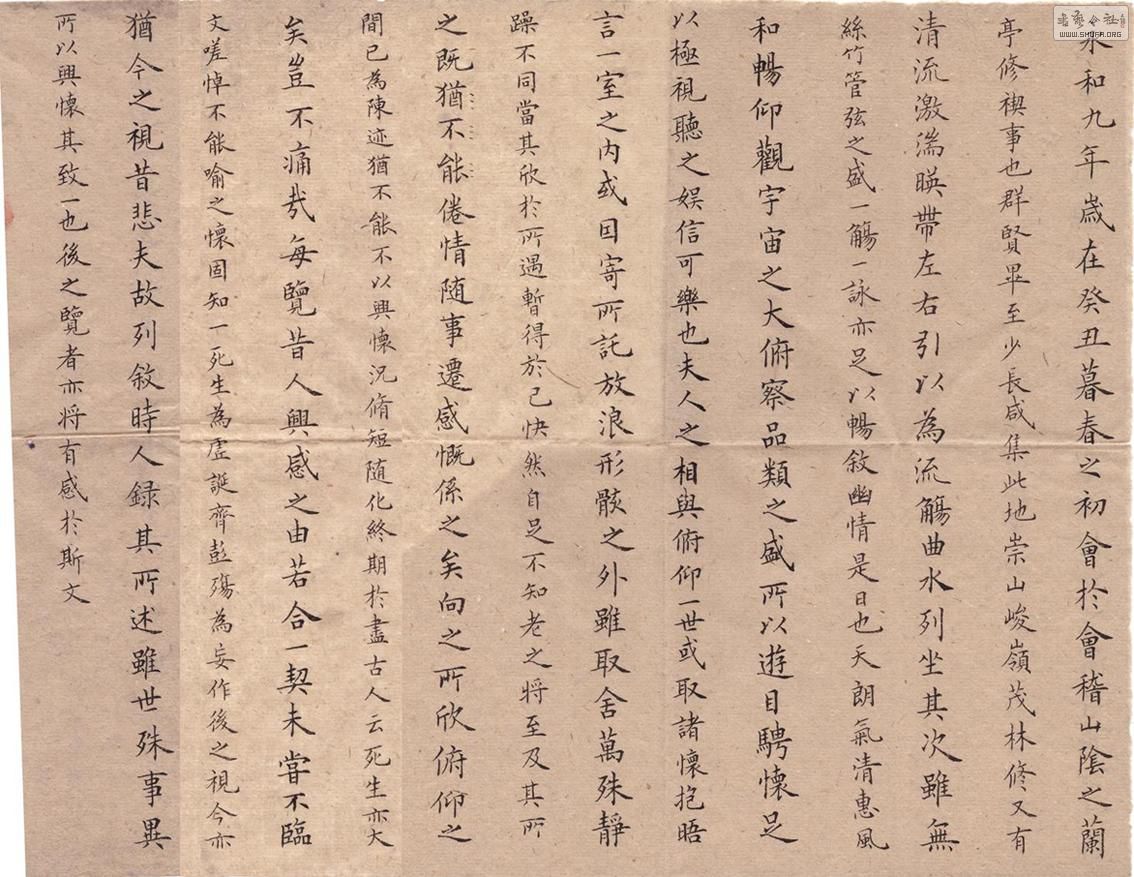 永和九年歲在癸丑暮春之初會於會稽山陰之蘭
亭修禊事也群賢畢至少長咸集此地崇山峻嶺茂林修又有
清流激湍暎帶左右引以為流觴曲水列坐其次雖無
絲竹管弦之盛一觴一詠亦足以暢敘幽情是日也天朗氣清惠風
和暢仰觀宇宙之大俯察品類之盛所以遊目騁懷足
以極視聽之娛信可樂也夫人之相與俯仰一世或取諸懷抱晤
言一室之內或因寄所託放浪形骸之外雖取舍萬殊靜
躁不同當其欣於所遇暫得於己快然自足不知老之將至及其所
之既猶不能倦情随事遷感慨係之矣向之所欣俯仰之
間已為陳迹猶不能不以興懷況脩短随化終期於盡古人云死生亦大
矣豈不痛哉每覽昔人興感之由若合一契未嘗不臨
文嗟悼不能喻之懷固知一死生為虛誕齊彭殤為妄作後之視今亦
猶今之視昔悲夫故列敘時人録其所述雖世殊事異
所以興懷其致一也後之覽者亦将有感於斯文
WWW.SHUFA.ORG